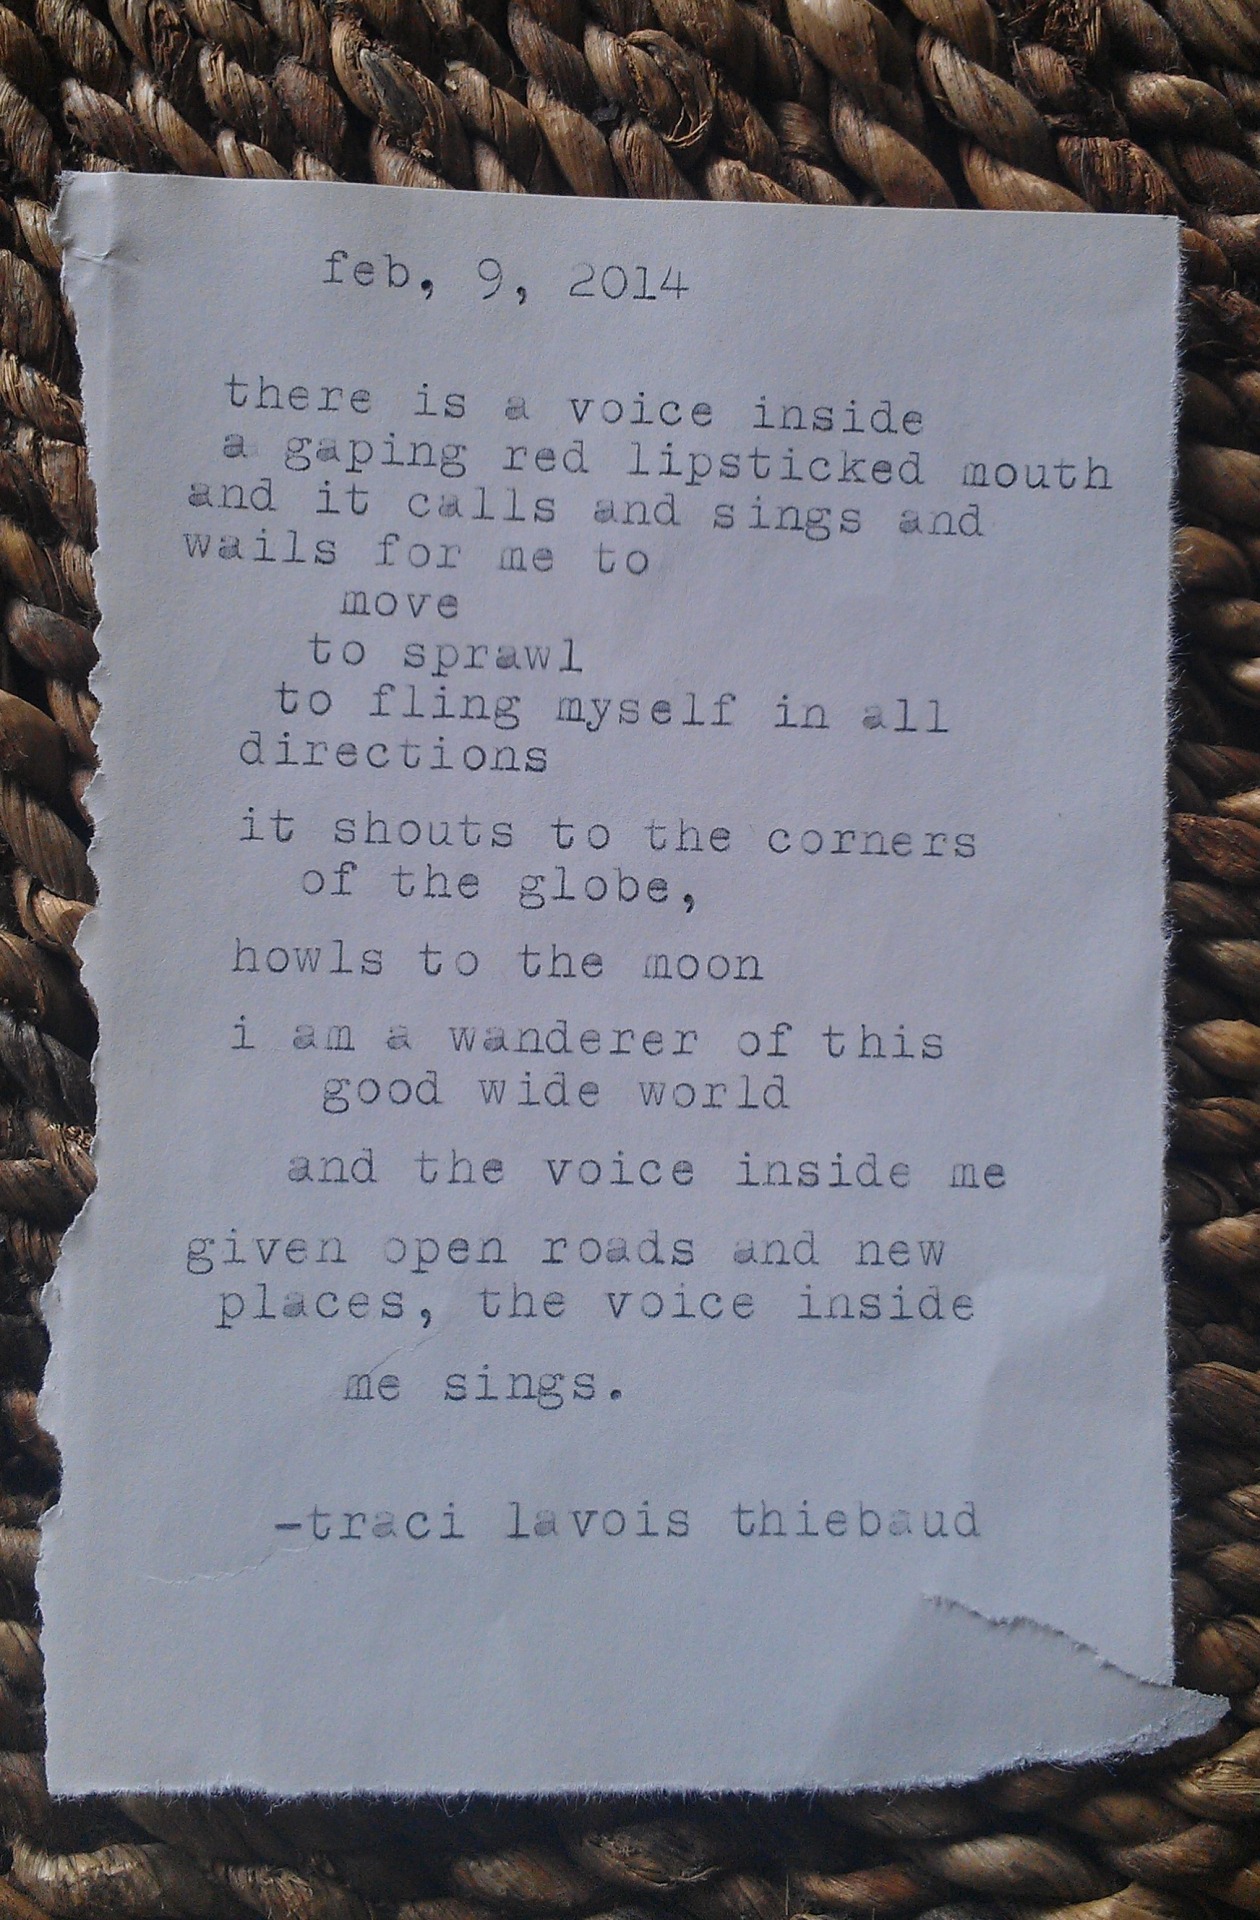 feb, 9, 2014
there is a voice inside
a gaping red lipsticked mouth
and it calls and sings and
wails for me to
move
to sprawl
to fling myself in all
directions
it shouts to the corners
of the globe,
howls to the moon
i am a wanderer of this
good wide world
and the voice inside me
given open roads and new
places, the voice inside
me sings.
-traci lavois thiebaud